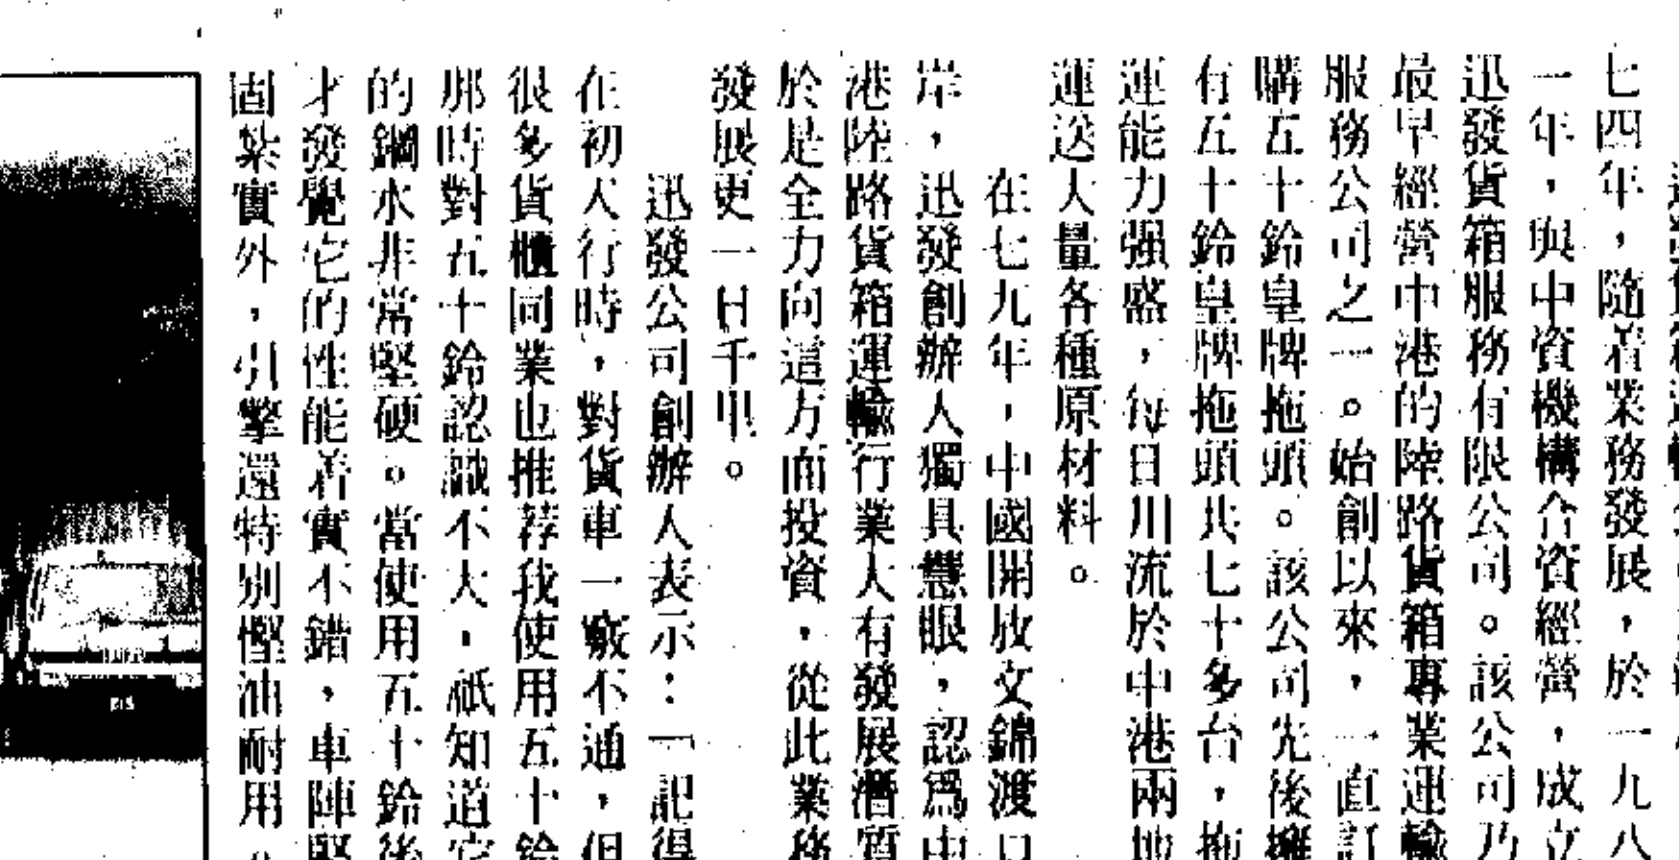 七四年，隨着業務發展，於一九八
一年，與中資機構合資經營，成立
迅發貨箱服務有限公司。該公司乃
最早經營中港的陸路貨箱專業運輸
服務公司之一。始創以來，一直訂
購五十鈴皇牌拖頭。該公司先後擁
有五十鈴皇牌拖頭共七十多台，拖
運能力强盛，每日川流於中港兩地
運送大量各種原材料。
在七九年，中國開放文錦渡口
岸，迅發創辦人獨具慧眼，認爲中
港陸路貨箱運輸行業大有發展潛質
於是全力向這方面投資，從此業務
發展更一日千里。
迅發公司創辦人表示：「記得
在初入行時，對貨車一竅不通，但
很多貨櫃同業也推荐我使用五十鈴
那時對五十鈴認識不大，祇知道它
的鋼水非常堅硬。當使用五十鈴後
才發覺它的性能着實不錯，車陣堅
固紮實外，引擎還特別慳油耐用